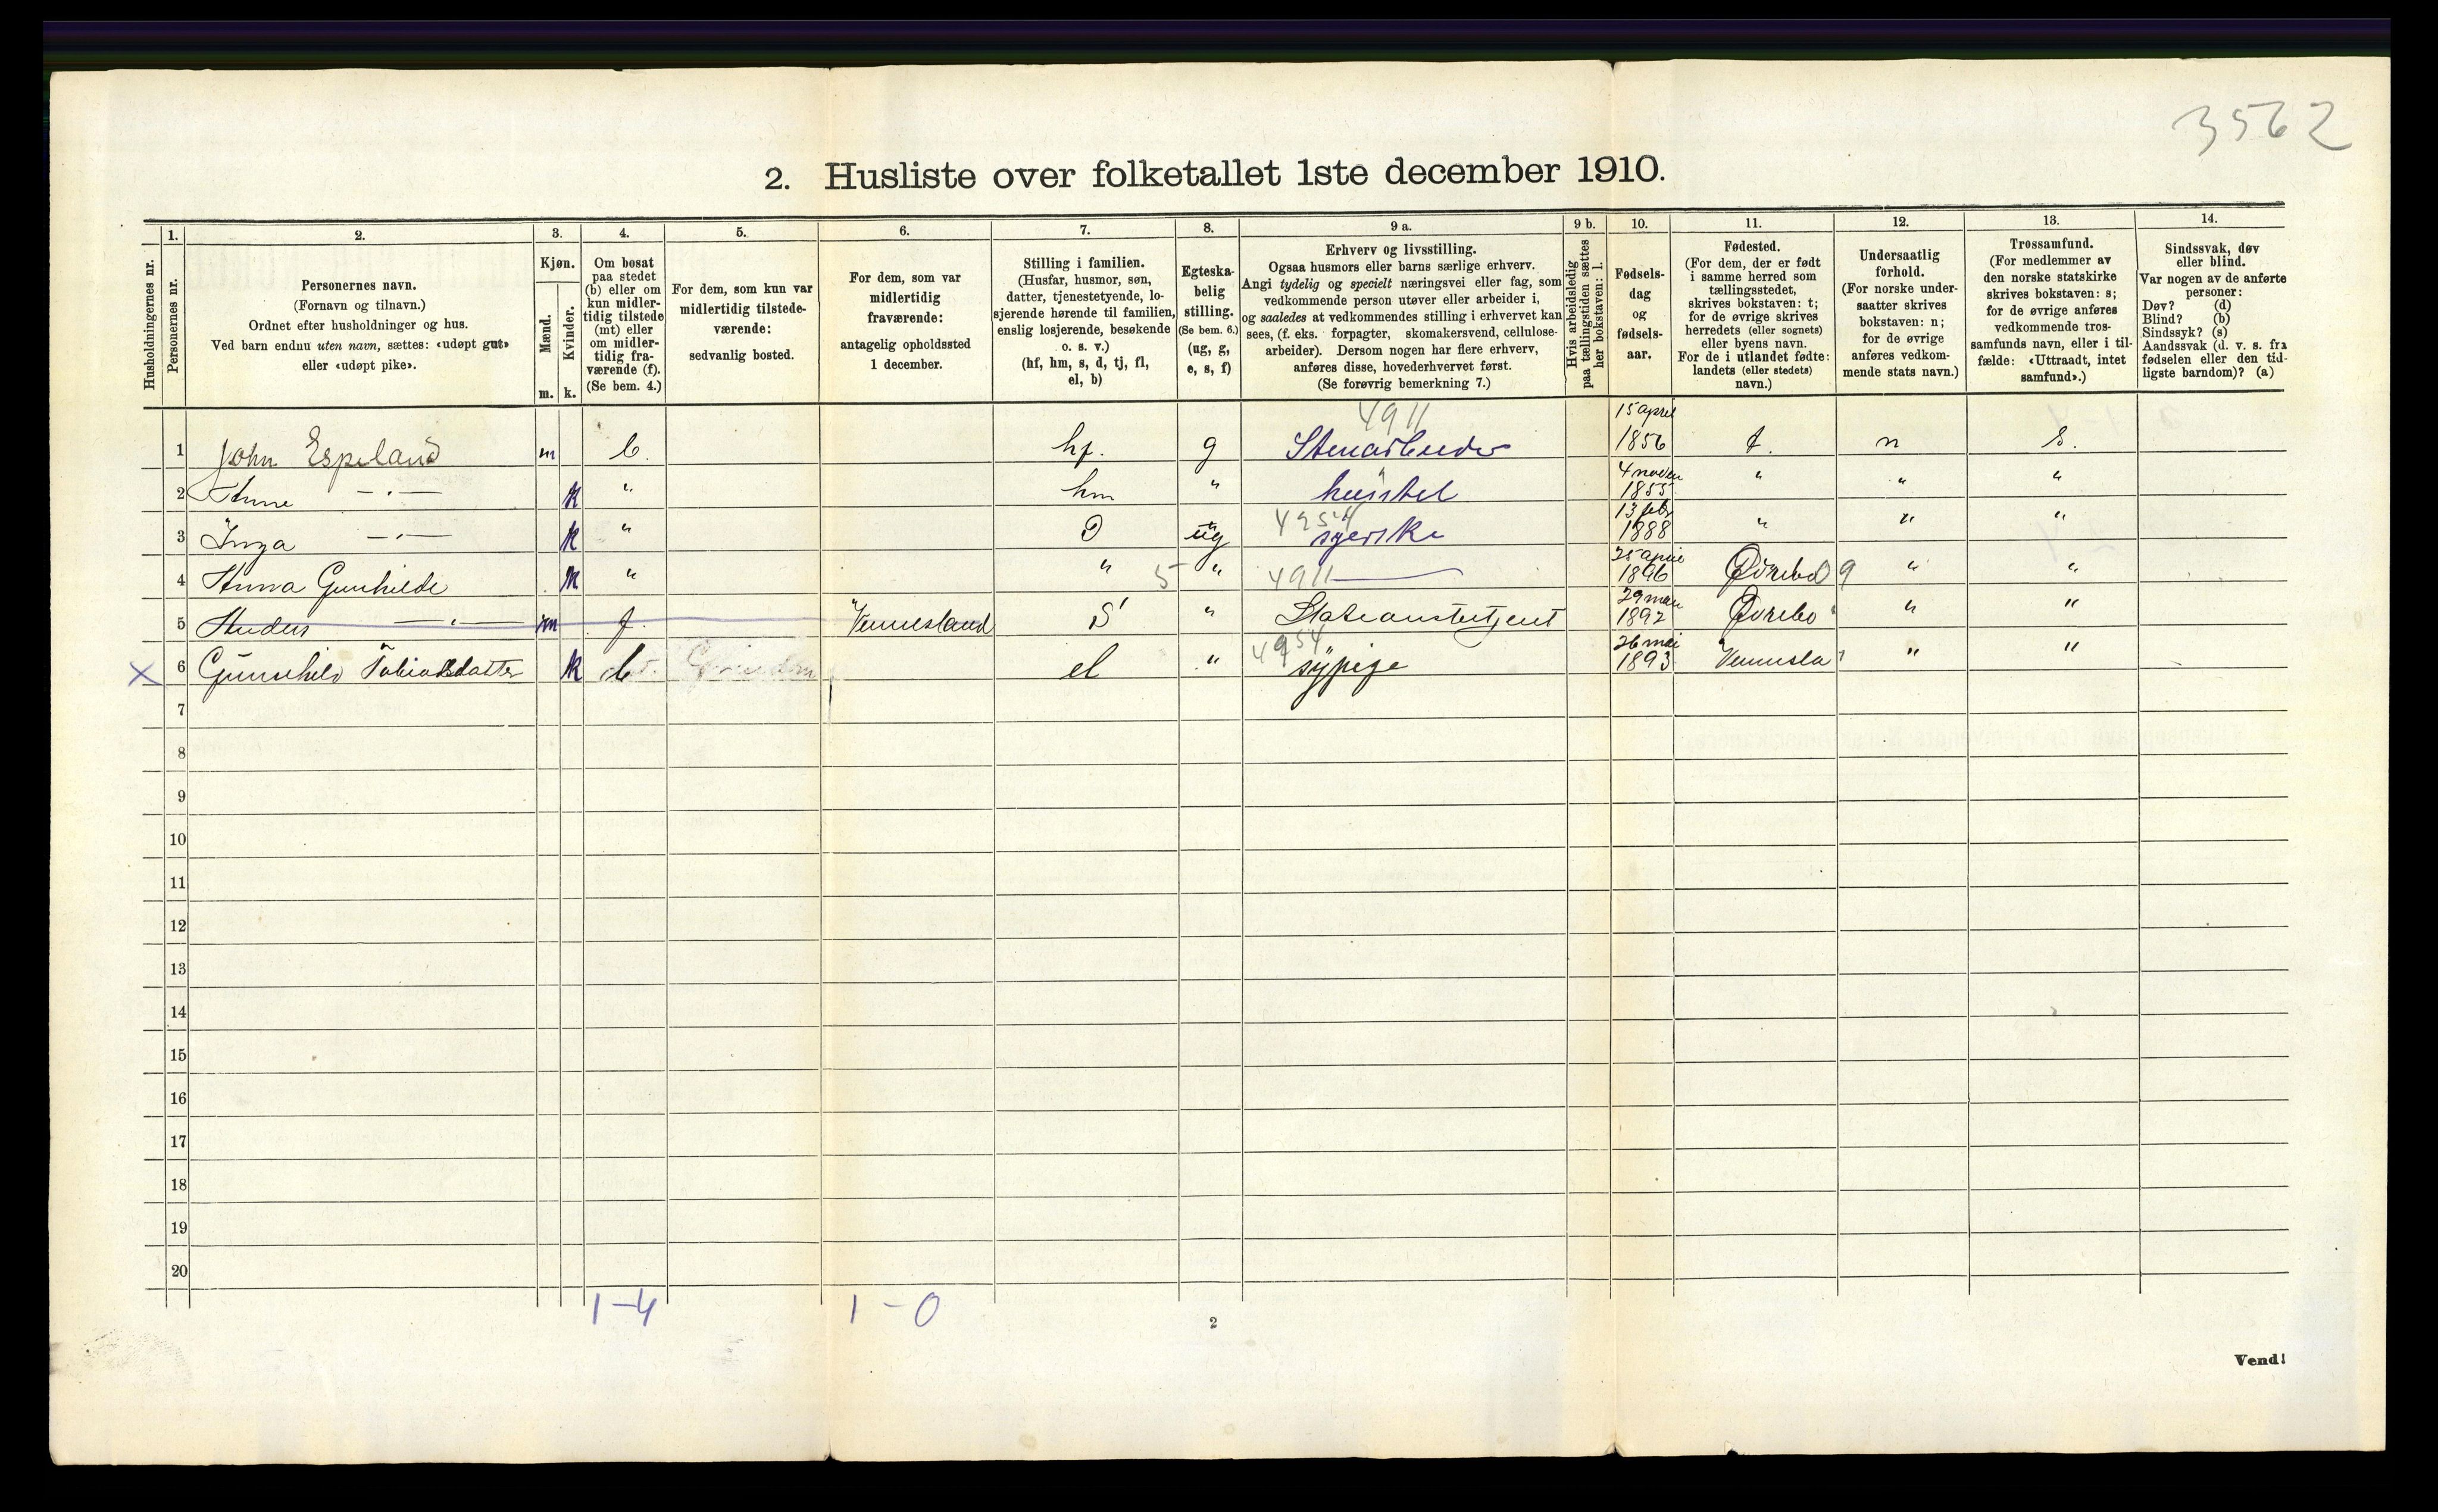 3562
2. Husliste over folketallet 1ste december 1910.
Husholdningernes nr.
1.
Personernes nr.
2.
Personernes navn.
(Fornavn og tilnavn.)
Ordnet efter husholdninger og hus.
Ved barn endnu uten navn, sættes: «udøpt gut»
eller «udøpt pike».
3.
Kjøn.
Mænd.
Kvinder.
m. k.
4.
Om bosat
paa stedet
(b) eller om
kun midler-
tidig tilstede
(mt) eller
om midler-
tidig fra-
værende (f).
(Se bem. 4.)
5.
For dem, som kun var
midlertidig tilstede-
værende:
sedvanlig bosted.
6.
For dem, som var
midlertidig
fraværende:
antagelig opholdssted
1 december.
7.
Stilling i familien.
(Husfar, husmor, søn,
datter, tjenestetyende, lo-
sjerende hørende til familien,
enslig losjerende, besøkende
o. s. v.)
(hf, hm, s, d, tj, fl,
el, b)
8.
Egteska-
belig
stilling.
(Se bem. 6.)
(ug, g,
e, s, f)
9 a.
Erhverv og livsstilling.
Ogsaa husmors eller barns særlige erhverv.
Angi tydelig og specielt næringsvei eller fag, som
vedkommende person utøver eller arbeider i,
og saaledes at vedkommendes stilling i erhvervet kan
sees, (f. eks. forpagter, skomakersvend, cellulose-
arbeider). Dersom nogen har flere erhverv,
anføres disse, hovederhvervet først.
(Se forøvrig bemerkning 7.)
9 b.
Hvis arbeidsledig
paa tællingstiden sættes
her bokstaven: l.
10.
Fødsels-
dag
og
fødsels-
aar.
11.
Fødested.
(For dem, der er født
i samme herred som
tællingsstedet,
skrives bokstaven: t;
for de øvrige skrives
herredets (eller sognets)
eller byens navn.
For de i utlandet fødte:
landets (eller stedets)
navn.)
12.
Undersaatlig
forhold.
(For norske under-
saatter skrives
bokstaven: n;
for de øvrige
anføres vedkom-
mende stats navn.)
13.
Trossamfund.
(For medlemmer av
den norske statskirke
skrives bokstaven: s;
for de øvrige anføres
vedkommende tros-
samfunds navn, eller i til-
fælde: «Uttraadt, intet
samfund».)
14.
Sindssvak, døv
eller blind.
Var nogen av de anførte
personer:
Døv? (d)
Blind? (b)
Sindssyk? (s)
Aandssvak (d. v. s. fra
fødselen eller den tid-
ligste barndom)? (a)
4911 15 april
1 John Espeland m b. hf. g Stenarbeider 1856 t. n s.
4 novem
2 Anne —"— k " hm " husstel 1855 " " "
4954 13 feb
3 Inga —"— k " D ug syerske 1888 " " "
25 april
4 Anna Gunhilde k " " 5 " 4911 — 1896 Øvrebo 9 " "
29 mai
5 Anders —"— m f. Vennesland S " 1892 Øvrebo " "
4954 26 mai
X 6 Gunnhild Tobiasdatter k b el " sypige 1893 Vennesla " "
7
8
9
10
11
12
13
14
15
16
17
18
19
20
1-4 1-0
2
Vend!